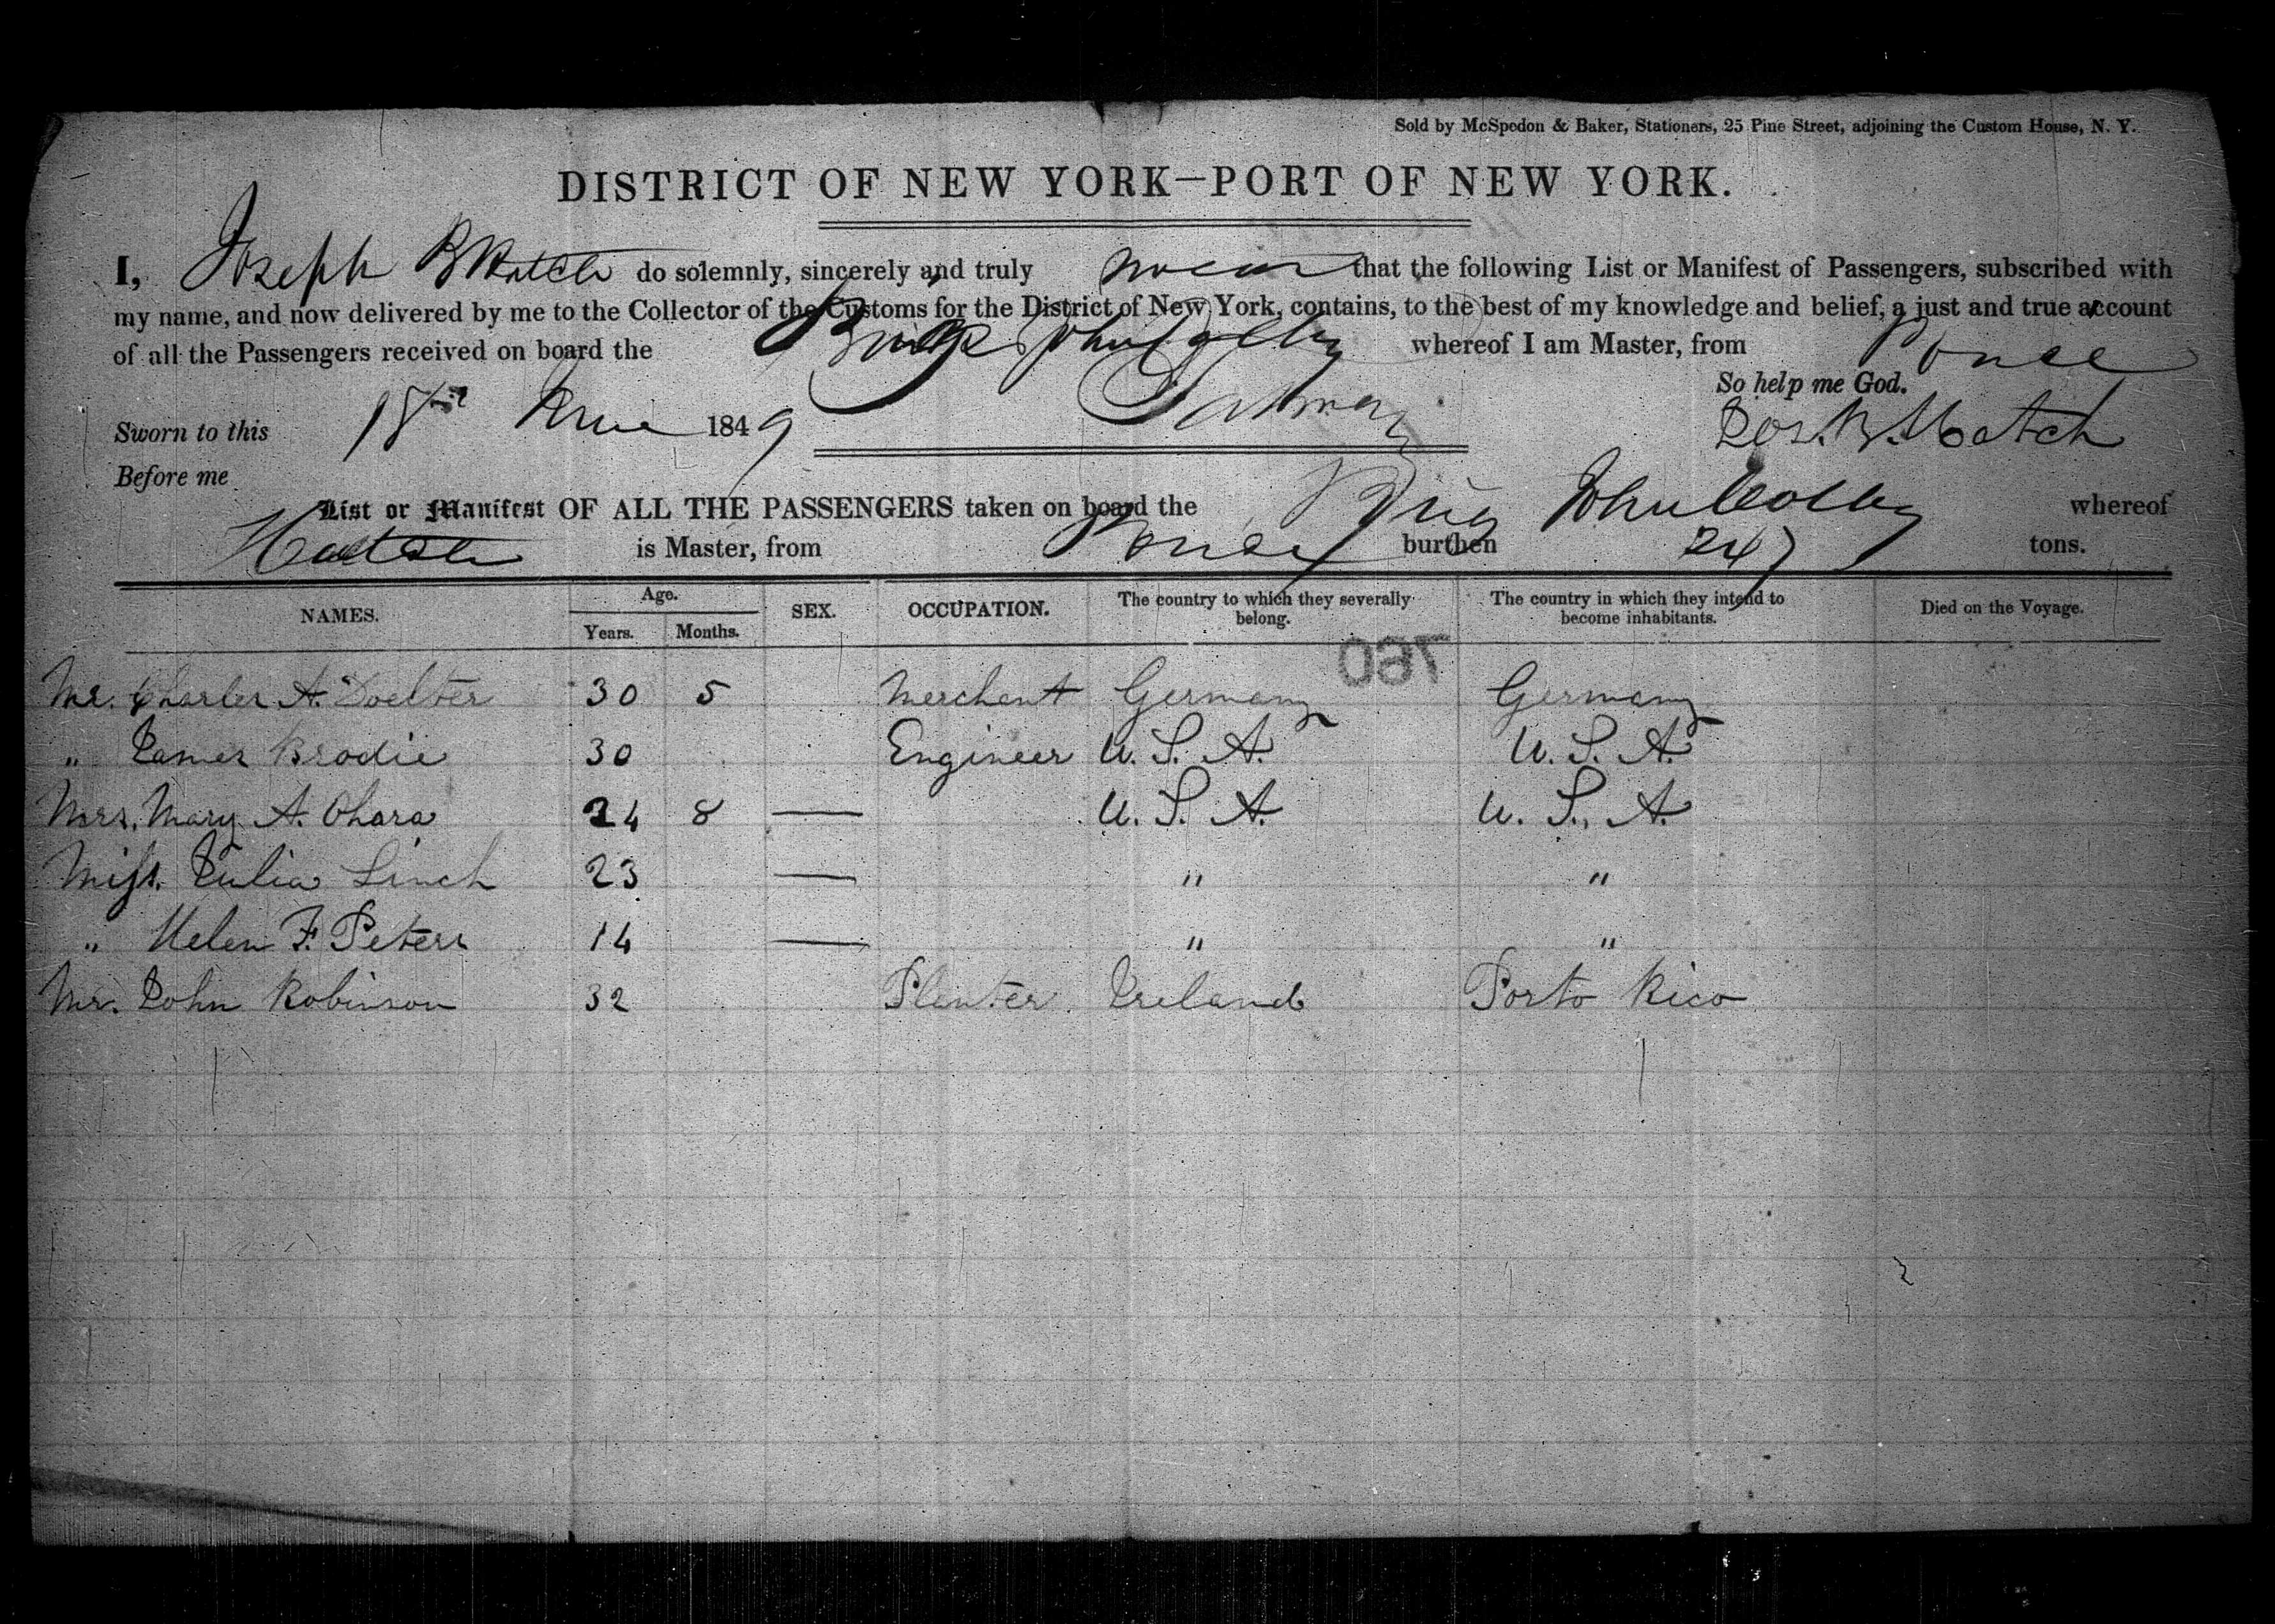 Sold by McSpedon & Baker, Stationers, 25 Pine Street, adjoining the Custom House, N. Y.
DISTRICT OF NEW YORK—PORT OF NEW YORK.
I, Joseph B Hatch do solemnly, sincerely and truly swear that the following List or Manifest of Passengers, subscribed with
my name, and now delivered by me to the Collector of the Customs for the District of New York, contains, to the best of my knowledge and belief, a just and true account
of all the Passengers received on board the Brig John Colby whereof I am Master, from Ponce
So help me God.
Sworn to this 18th June 1849 Jos. B. Hatch
Before me
List or Manifest OF ALL THE PASSENGERS taken on board the Brig John Colby whereof
Hatch is Master, from Ponce burthen 247 tons.
NAMES. Age. Years. Months. SEX. OCCUPATION. The country to which they severally belong. The country in which they intend to become inhabitants. Died on the Voyage.
760
Mr. Charles A. Doelter 30 5 Merchant Germany Germany
" James Brodie 30 Engineer U. S. A. U. S. A.
Mrs. Mary A. Ohara 24 8 — U. S. A. U. S. A.
Miss. Julia Linch 23 — " "
" Helen F. Peters 14 — " "
Mr. John Robinson 32 Planter Ireland Porto Rico